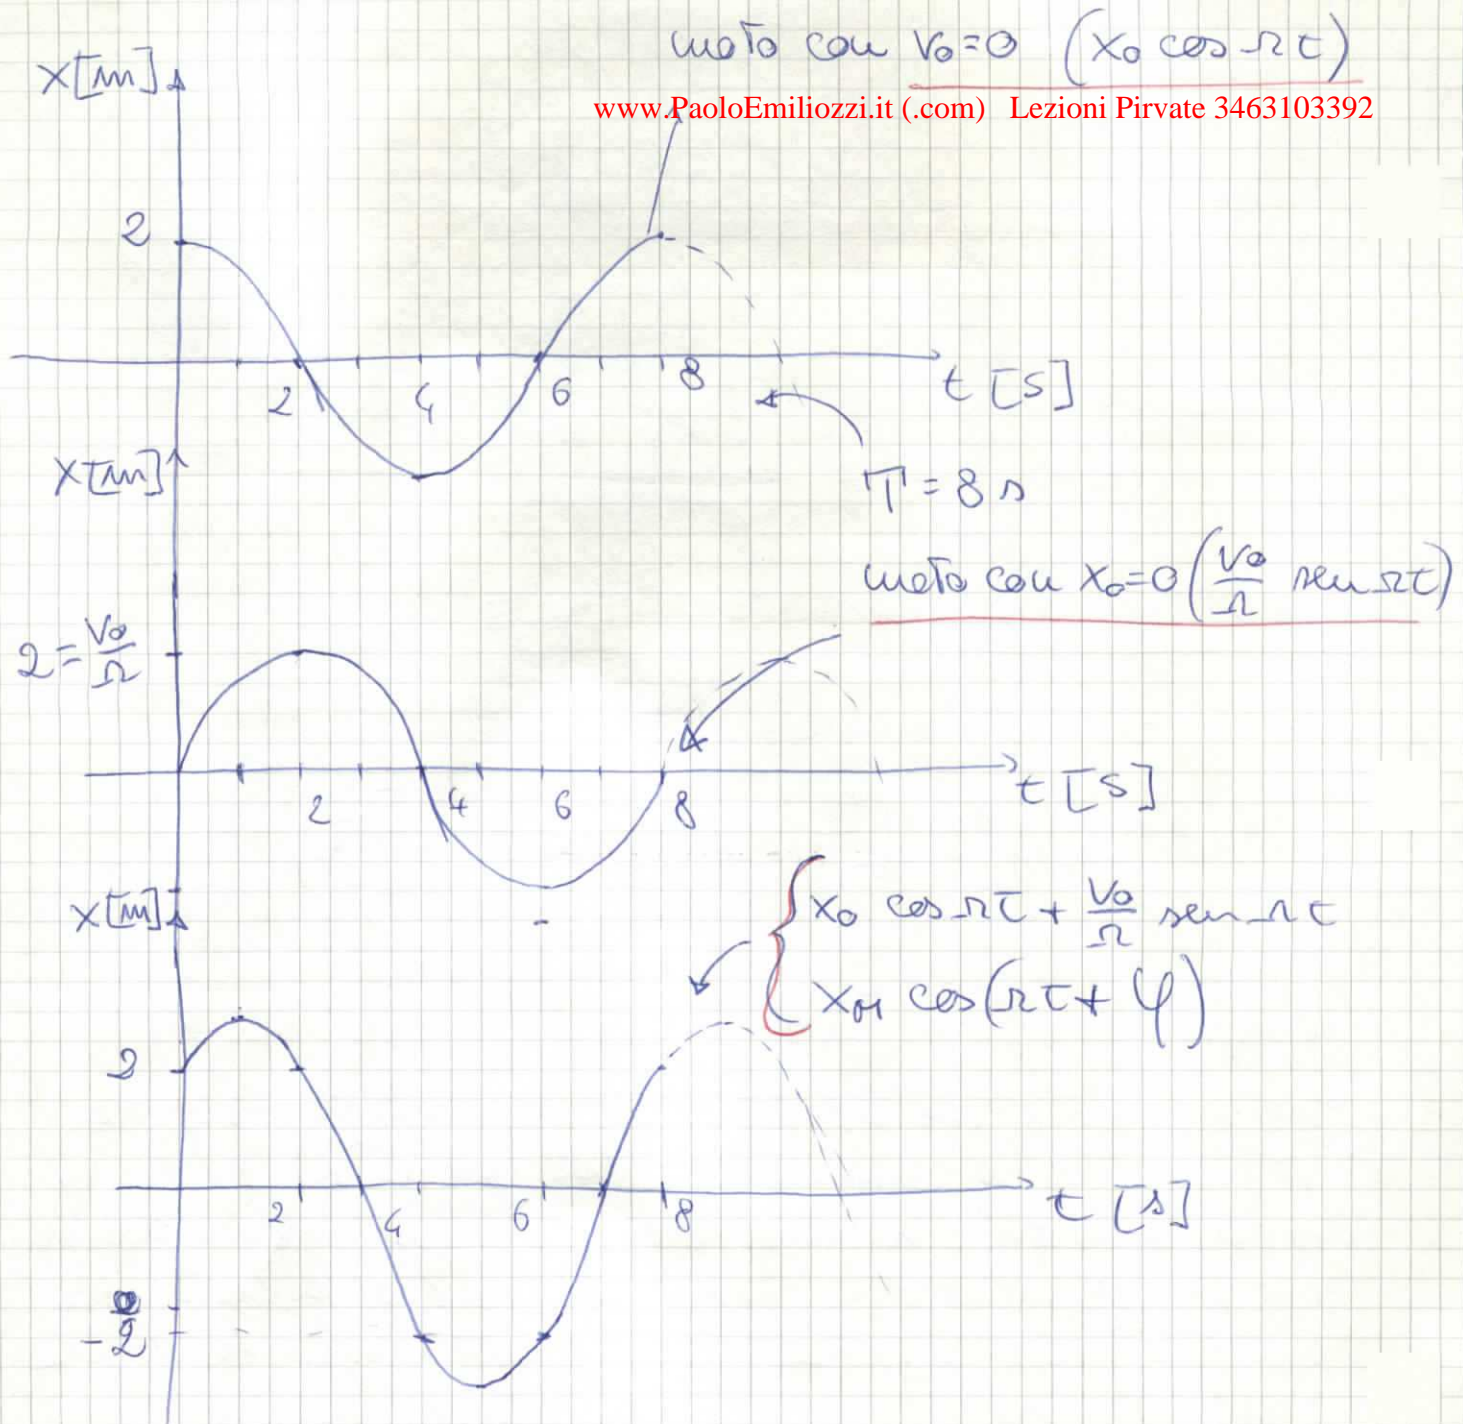 moto con v₀=0 (x₀ cos Ωt)
x[m]
www.PaoloEmiliozzi.it (.com) Lezioni Pirvate 3463103392
2
2 4 6 8
t [s]
x[m]
T = 8 s
moto con x₀=0 (v₀/Ω sen Ωt)
2 = v₀/Ω
2 4 6 8
t [s]
x[m]
x₀ cos Ωt + v₀/Ω sen Ωt
x_M cos(Ωt + φ)
2
2 4 6 8
t [s]
-2